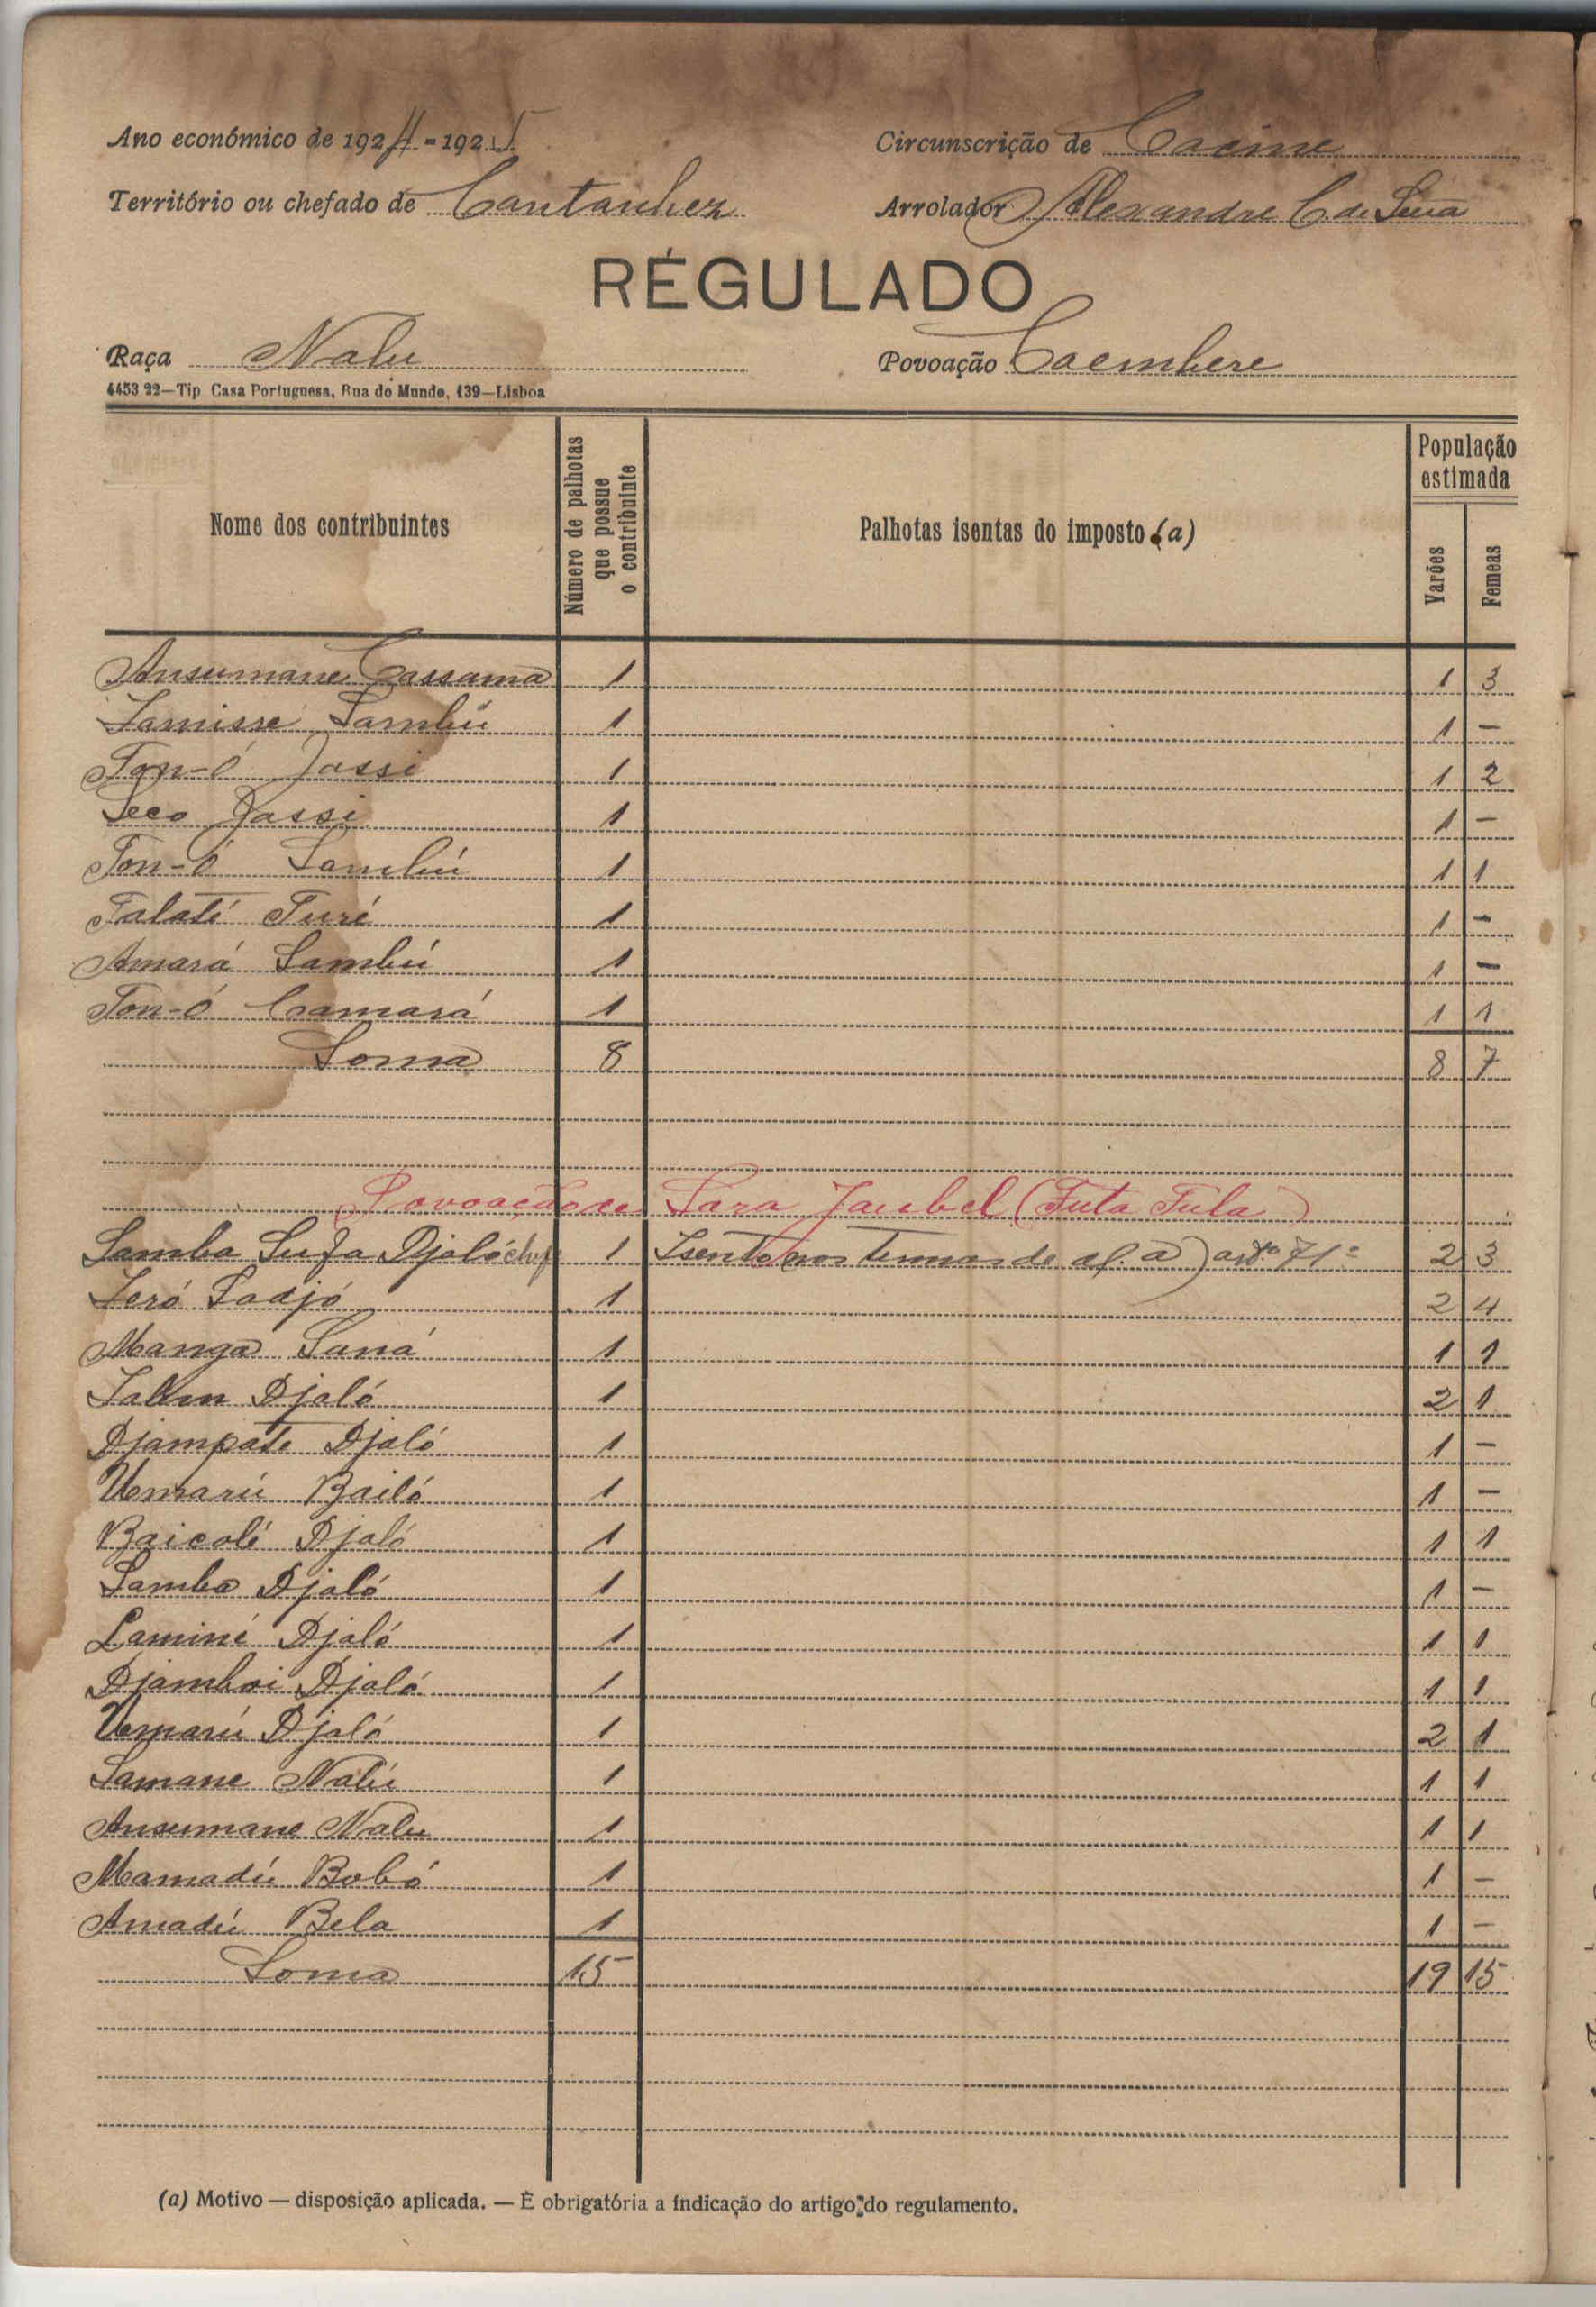 Ano económico de 1924 - 1925 Circunscrição de Cacine
Território ou chefado de Cantanhez Arrolador Alexandre C. de Sena
RÉGULADO
Raça Nalu Povoação Caembere
4453 22—Tip Casa Portuguesa, Rua do Mundo, 139—Lisboa
Nome dos contribuintes Número de palhotas que possue o contribuinte Palhotas isentas do imposto (a) População estimada Varões Femeas
Ansumane Cassama 1 1 3
Lamisse Sambú 1 1 —
Ton-ó Jassi 1 1 2
Seco Jassi 1 1 —
Ton-ó Sambú 1 1 1
Talaté Turé 1 1 —
Amará Sambú 1 1 —
Ton-ó Camará 1 1 1
Soma 8 8 7
Povoação de Sara Jaubel (Futa Fula)
Samba Sufa Djaló chefe 1 Isento nos termos de al. a) artº 71º 2 3
Seró Sadjo 1 2 4
Manga Saná 1 1 1
Salim Djaló 1 2 1
Djampate Djaló 1 1 —
Umarú Bailó 1 1 —
Baicolé Djaló 1 1 1
Samba Djaló 1 1 —
Laminé Djaló 1 1 1
Djamboi Djaló 1 1 1
Umarú Djaló 1 2 1
Samane Nalú 1 1 1
Ansumane Nalu 1 1 1
Mamadú Bobó 1 1 —
Amadú Bela 1 1 —
Soma 15 19 15
(a) Motivo — disposição aplicada. — É obrigatória a indicação do artigo do regulamento.